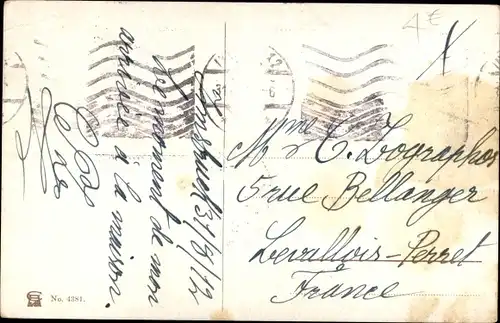 Innsbruck 31/8/12
Le moment de mon
arrivée à la maison.
4€
Mme C. Zographos
5 rue Bellanger
Levallois-Perret
France
No. 4381.